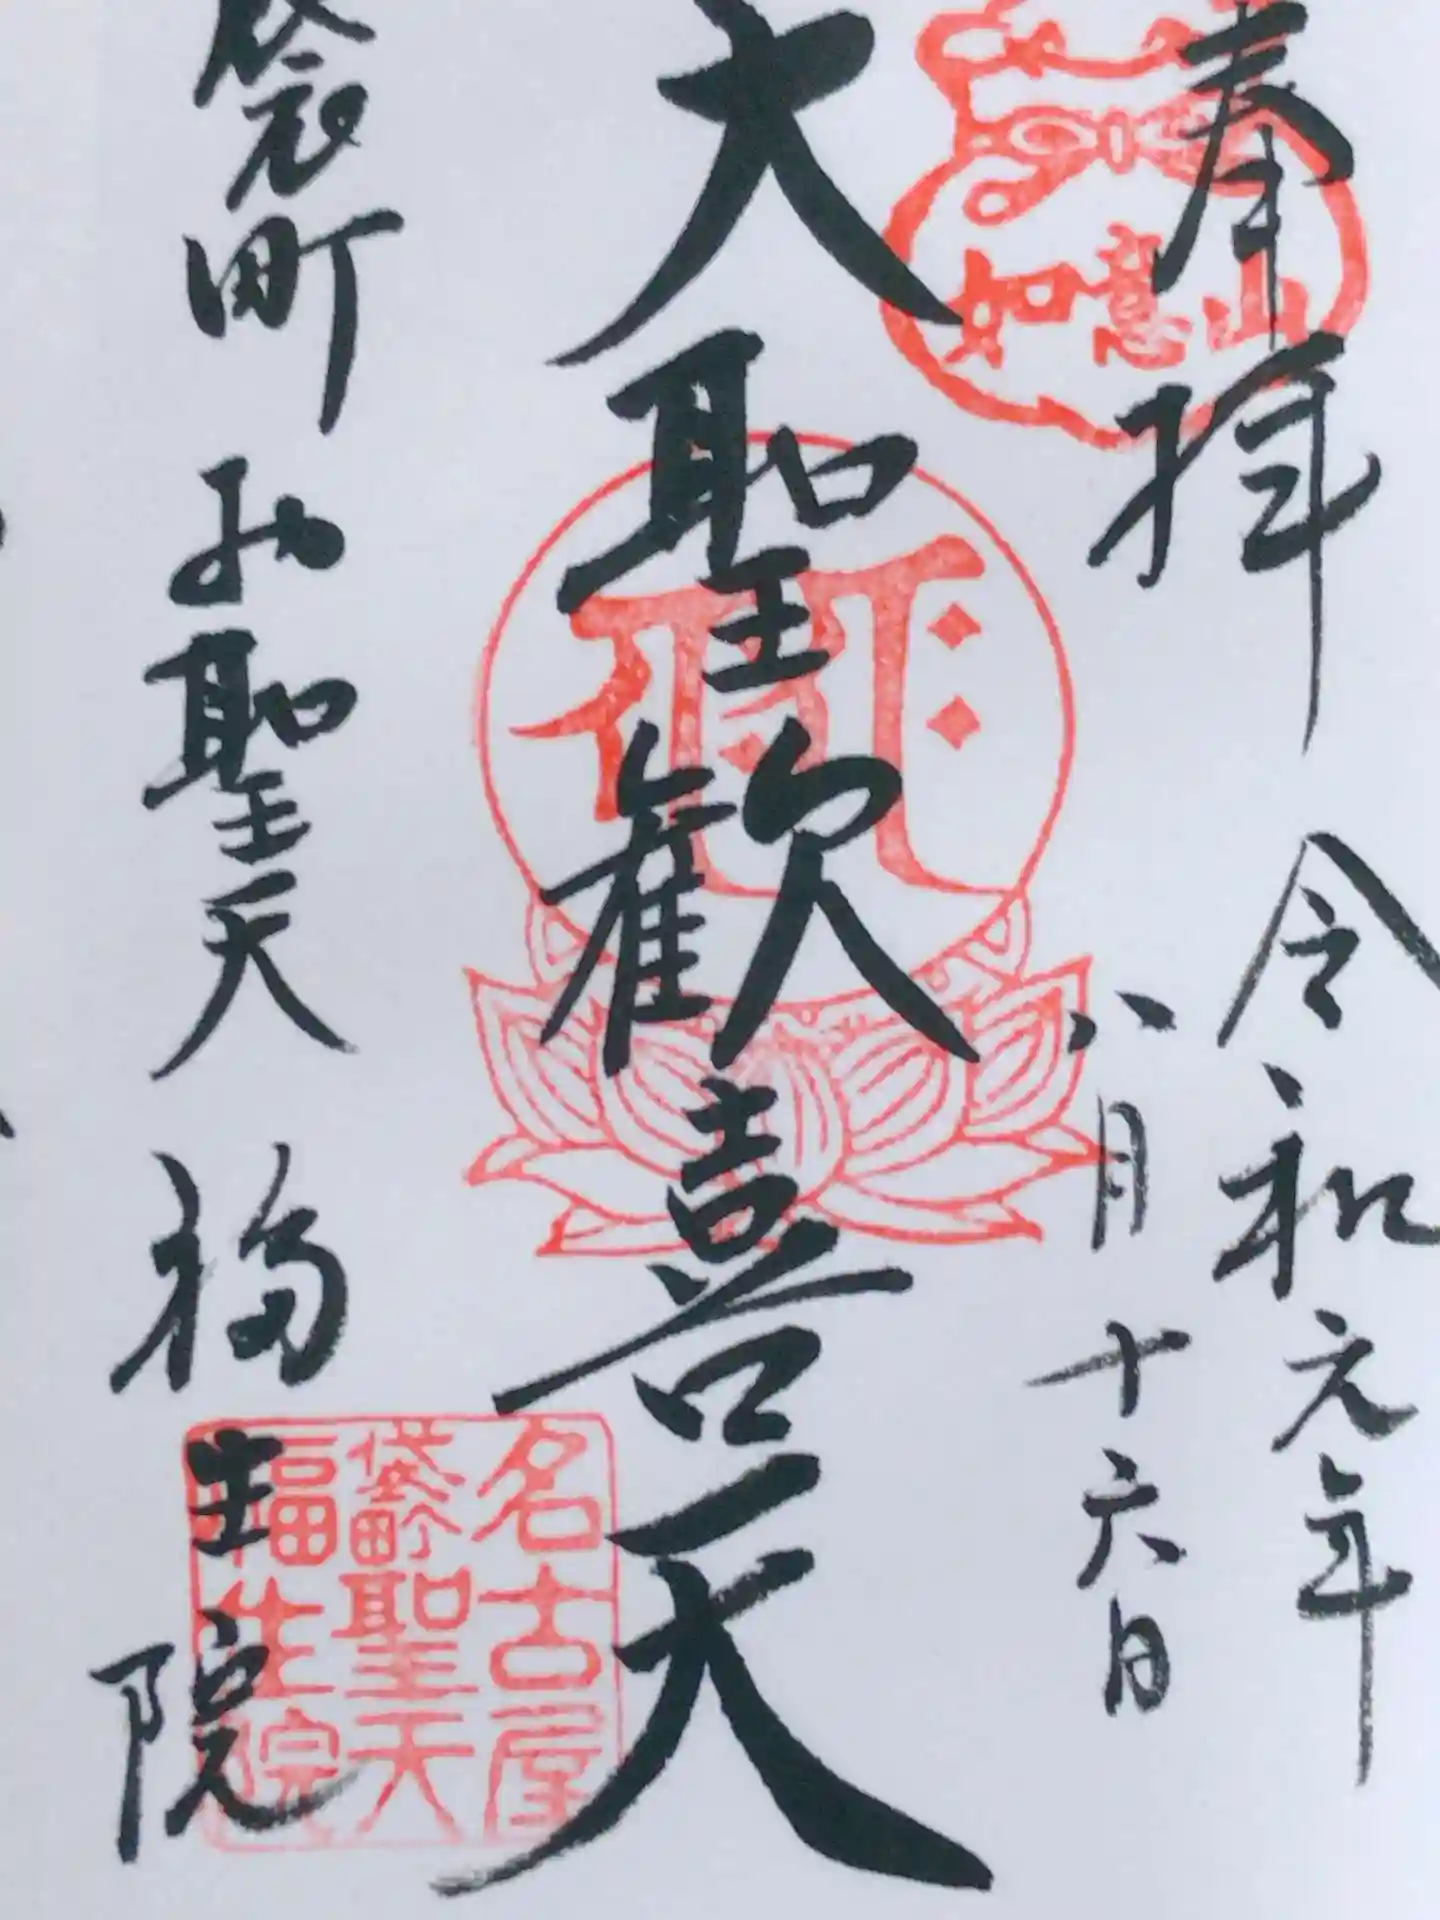 奉拝
令和元年
八月十六日
大聖歓喜天
袋町お聖天
福生院
如意山
名古屋
袋町聖天
福生院